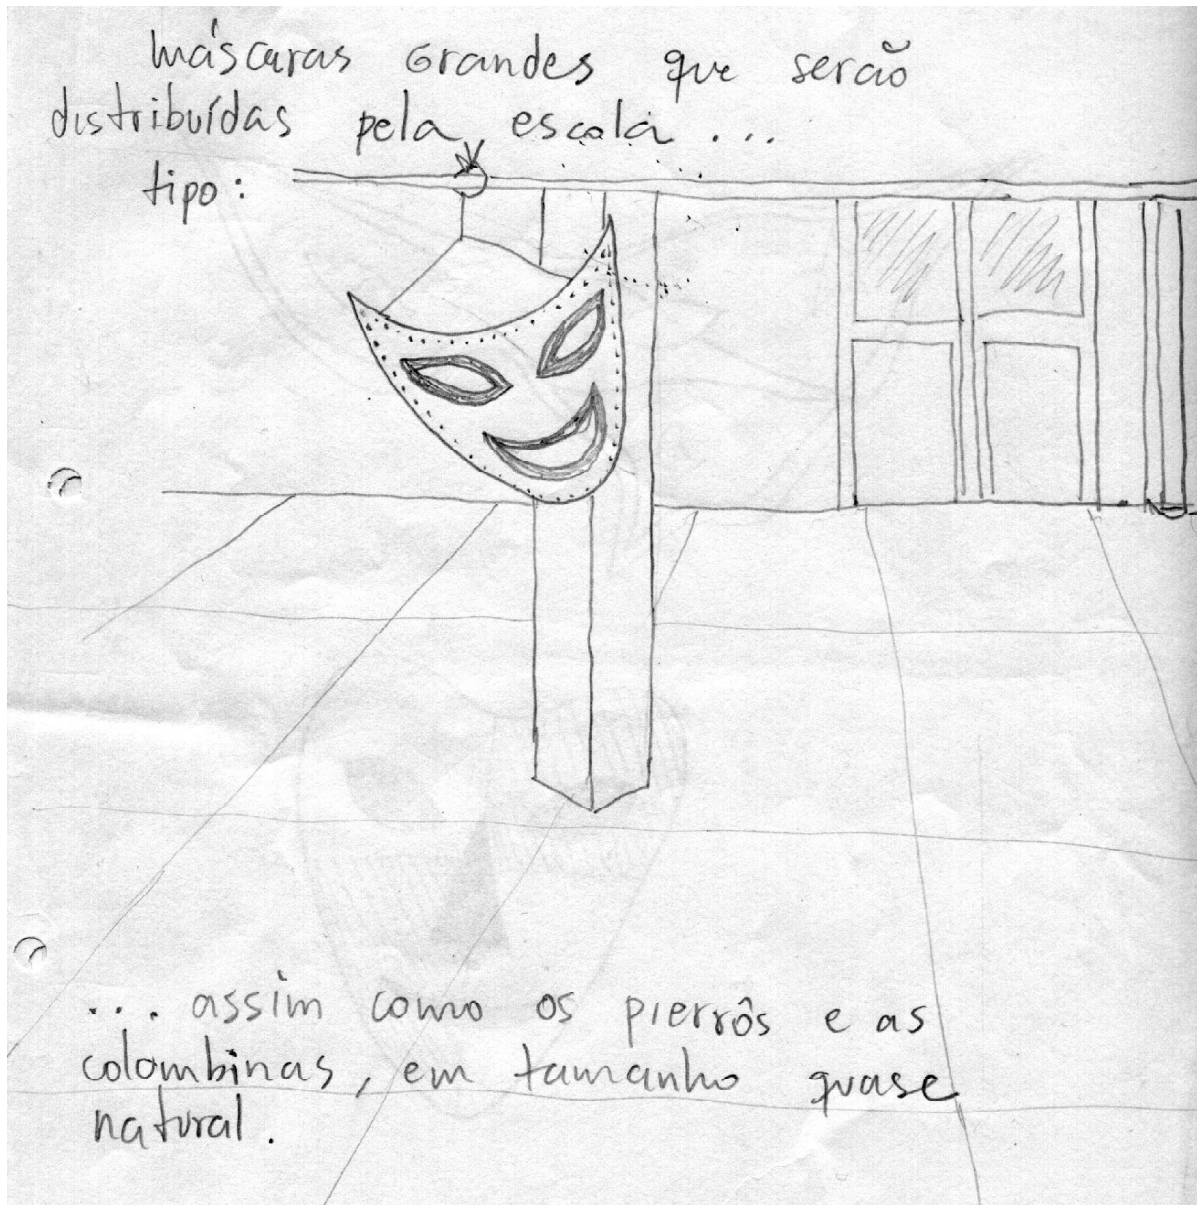 máscaras Grandes que serão
distribuídas pela escola ...
tipo:
... assim como os pierrôs e as
colombinas, em tamanho quase
natural.